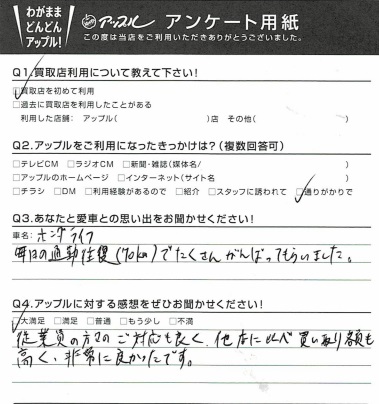 わがまま
どんどん
アップル!
アップル アンケート用紙
この度は当店をご利用いただきありがとうございました。
Q1.買取店利用について教えて下さい!
☑買取店を初めて利用
□過去に買取店を利用したことがある
利用した店舗: アップル( )店 その他( )
Q2.アップルをご利用になったきっかけは?(複数回答可)
□テレビCM □ラジオCM □新聞・雑誌(媒体名/ )
□アップルのホームページ □インターネット(サイト名 )
□チラシ □DM □利用経験があるので □紹介 □スタッフに誘われて ☑通りがかりで
Q3.あなたと愛車との思い出をお聞かせください!
車名: ホンダライフ
毎日の通勤往復(70km)でたくさんがんばってもらいました。
Q4.アップルに対する感想をぜひお聞かせください!
☑大満足 □満足 □普通 □もう少し □不満
従業員の方々のご対応も良く、他店に比べ買い取り額も
高く、非常に良かったです。